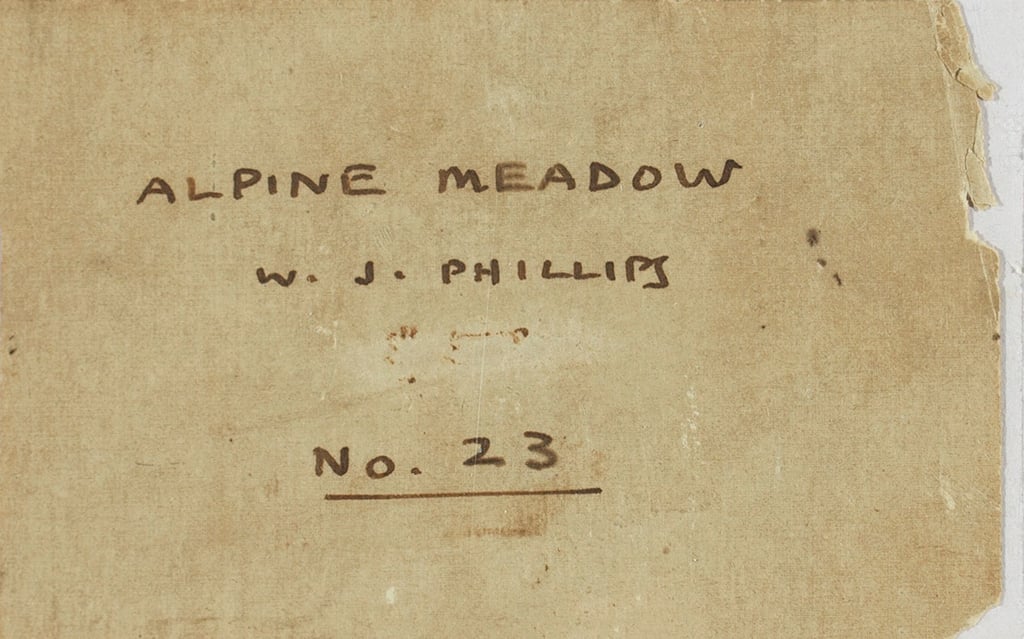 ALPINE MEADOW
W. J. PHILLIPS
No. 23